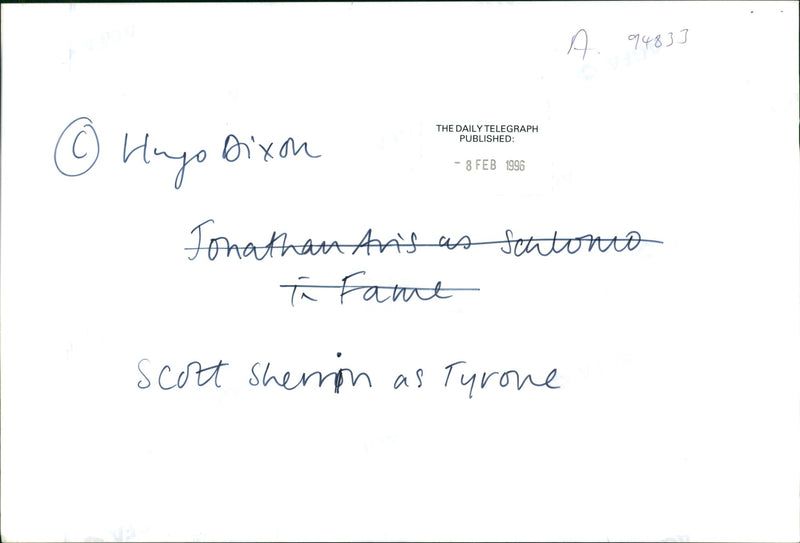 A. 94833
© Hugo Dixon
THE DAILY TELEGRAPH
PUBLISHED:
- 8 FEB 1996
Jonathan Avis as
in Fame
Scott Sherrin as Tyrone